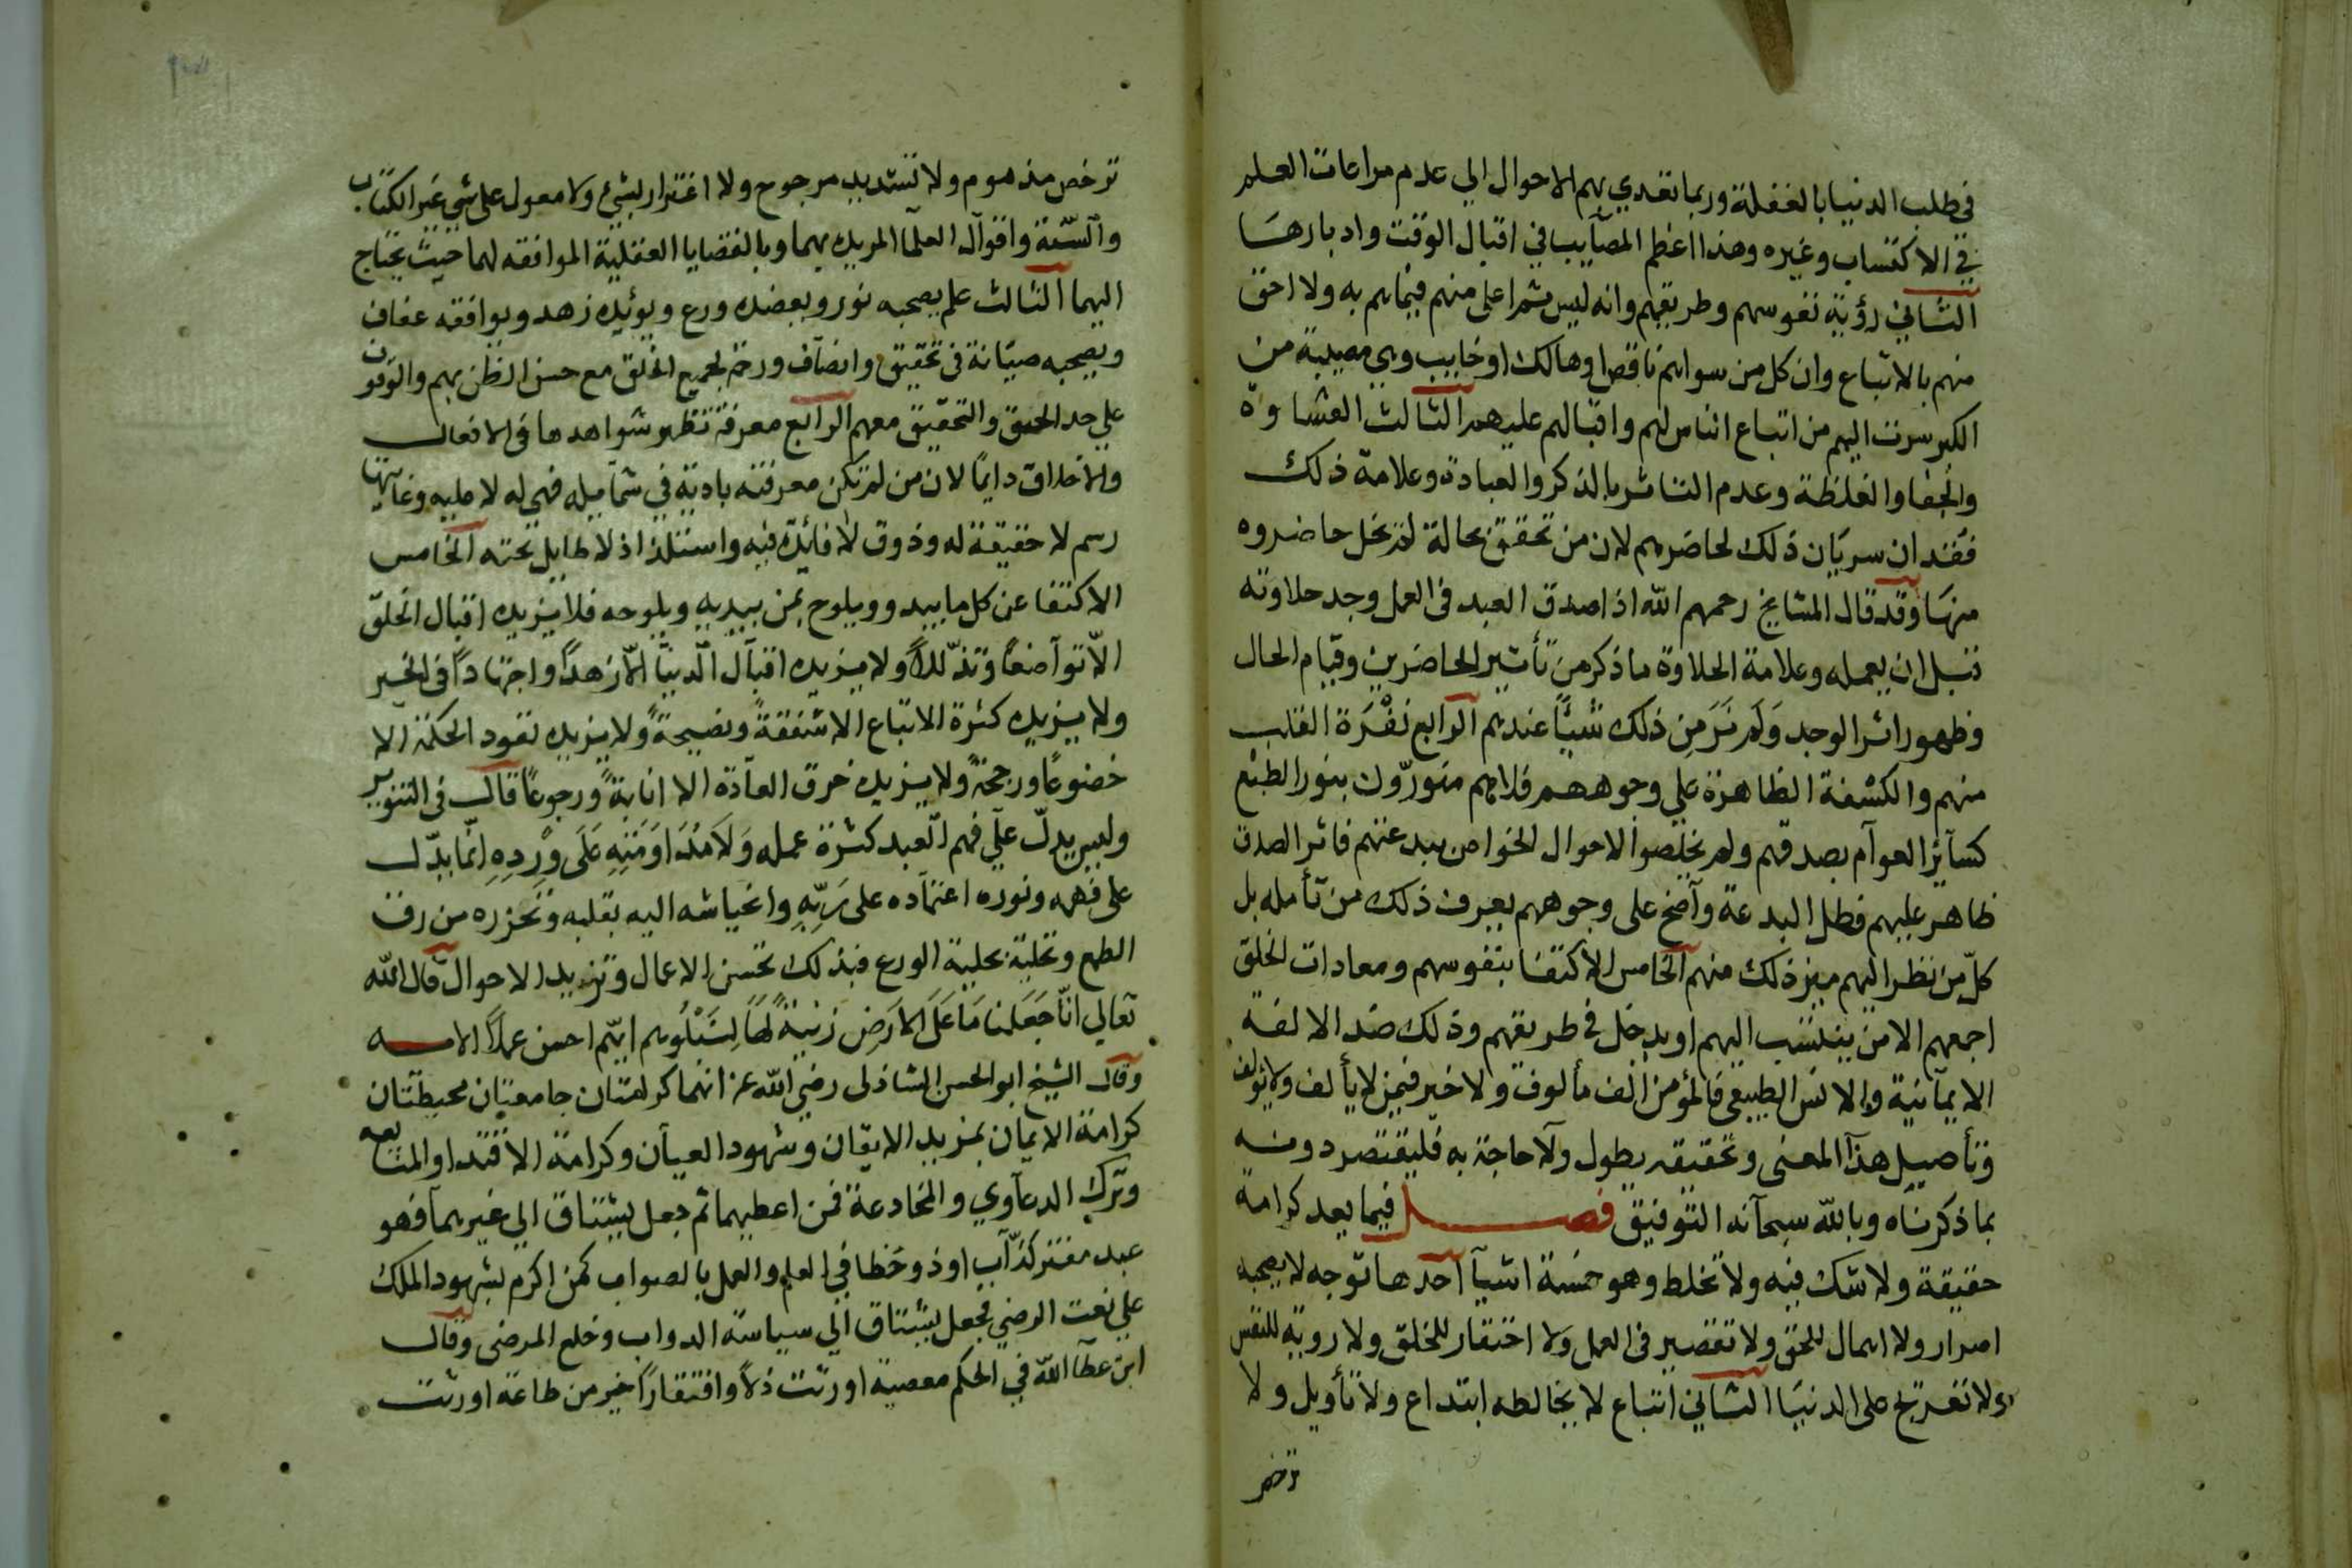 في طلب الدنيا بالغفلة وربما تعدي بهم الاحوال الي عدم مراعات العلم
في الاكتساب وغيره وهذا اعظم المصايب في اقبال الوقت وادبارها
الثاني رؤية نفوسهم وطريقهم وانه ليس ثم اعلي منهم فيما هم به ولا احق
منهم بالاتباع وان كل من سواهم ناقص او هالك او خايب وهي مصيبة من
الكبر سرت اليهم من اتباع الناس لهم واقبالهم عليهم الثالث الغشاوة
والجفا والغلظة وعدم التاثر بالذكر والعبادة وعلامة ذلك
فقدان سريان ذلك لحاضرهم لان من تحقق بحالة لم تخل حاضروه
منها وقد قال المشايخ رحمهم الله اذا صدق العبد في العمل وجد حلاوته
قبل ان يعمله وعلامة الحلاوة ما ذكر من تأثير الحاضرين وقيام الحال
وظهور اثر الوجد ولم نر من ذلك شيئا عندهم الرابع نفرة القلب
منهم والكشفة الظاهرة علي وجوههم فلاهم منورون بنور الطبع
كسائر العوام بصدقهم ولم يخلصوا لاحوال الخواص بيد عنهم فاثر الصدق
ظاهر عليهم فظل البدعة واضح على وجوههم يعرف ذلك من تأمله بل
كل من نظر اليهم ميز ذلك منهم الخامس الاكتفا بنفوسهم ومعادات الخلق
اجمعهم الا من ينتسب اليهم او يدخل في طريقهم وذلك ضد الالفة
الايمانية والانس الطبيعي فالمؤمن الف مألوف ولا خير فيمن لا يألف ولا يولف
وتأصيل هذا المعنى وتحقيقه يطول ولا حاجة به فليقتصر دونه
بما ذكرناه وبالله سبحانه التوفيق فصل فيما يعد كرامة
حقيقة ولا شك فيه ولا تخلط وهو خمسة اشيا احدها توجه لا يصحبه
اصرار ولا اهمال للحق ولا تقصير في العمل ولا احتقار للخلق ولا روية للنفس
ولا تعريج على الدنيا الثاني اتباع لا يخالطه ابتداع ولا تأويل ولا
ترخص
ترخص مذموم ولا تستديد مرجوح ولا اغترار بشيء ولا معول على شي غير الكتاب
والسنة واقوال العلما المريد بهما وبالقضايا العقلية الموافقه لهما حيث يحتاج
اليهما الثالث علم يصحبه نور ويعضده ورع ويؤيده زهد ويوافقه عفاف
ويصحبه صيانة في تحقيق وانصاف ورحمة لجميع الخلق مع حسن الظن بهم والوقوف
علي حد الحق والتحقيق معهم الرابع معرفة تظهر شواهدها في الافعال
والاخلاق دايما لان من لم تكن معرفته بادية في شمايله فهي له لا عليه وغايتها
رسم لا حقيقة له وذوق لا فائدة فيه واستلذاذ لا طايل تحته الخامس
الاكتفا عن كل ما يبدو ويلوح بمن يبديه ويلوحه فلا يزيده اقبال الخلق
الا تواضعا وتذللا ولا يزيده اقبال الدنيا الا زهدا واجتهادا في الخير
ولا يزيده كثرة الاتباع الا شفقة ونصيحة ولا يزيده نفود الحكمة الا
خضوعا ورحمة ولا يزيده خرق العادة الا انابة ورجوعا قال في التنوير
وليس يدل علي فهم العبد كثرة عمله ولا مداومته على ورده انما يدل
على فهمه ونوره اعتماده على ربه وانحياشه اليه بقلبه وتحرره من رق
الطمع وتحليه بحلية الورع فبذلك تحسن الاعمال وتزيد الاحوال قال الله
تعالي انا جعلنا ما على الارض زينة لها لنبلوهم ايهم احسن عملا الايه
وقال الشيخ ابو الحسن الشاذلى رضي الله عنه انهما كرامتان جامعتان محيطتان
كرامة الايمان بمزيد الايقان وشهود العيان وكرامة الاقتدا والمتابعه
وترك الدعاوي والمخادعة فمن اعطيهما ثم جعل يشتاق الي غيرهما فهو
عبد مفتر كذاب او ذو خطا في العلم والعمل بالصواب كمن اكرم بشهود الملك
علي نعت الرضي فجعل يشتاق الي سياسة الدواب وخلع المرضى وقال
ابن عطا الله في الحكم معصية اورثت ذلا وافتقارا خير من طاعة اورثت